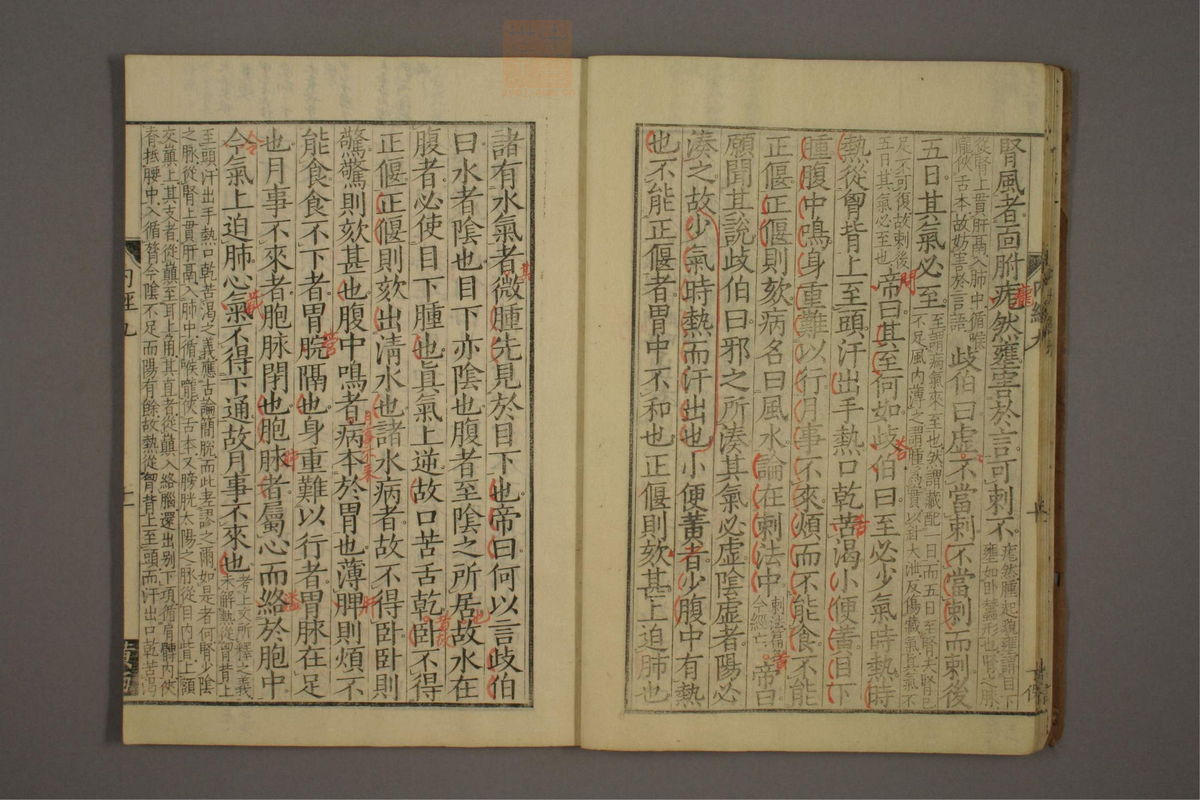 腎風者面胕痝然壅害於言可刺不痝然腫起壅謂目下壅如卧蠶形也腎之脉
從腎上貫肝鬲入肺中循喉嚨俠舌本故妨害於言語歧伯曰虛不當刺不當刺而刺後
五日其氣必至至謂病氣來至也然謂藏配一日而五日至腎夫腎已不足風內薄之謂腫為實以針大泄反傷藏氣真氣不
足不可復故刺後五日其氣必至也帝曰其至何如歧伯曰至必少氣時熱時
熱從胷背上至頭汗出手熱口乾苦渴小便黃目下
腫腹中鳴身重難以行月事不來煩而不能食不能
正偃正偃則欬病名曰風水論在刺法中刺法篇名今經亡帝曰
願聞其說歧伯曰邪之所湊其氣必虛陰虛者陽必
湊之故少氣時熱而汗出也小便黃者少腹中有熱
也不能正偃者胃中不和也正偃則欬甚上迫肺也
諸有水氣者微腫先見於目下也帝曰何以言歧伯
曰水者陰也目下亦陰也腹者至陰之所居故水在
腹者必使目下腫也真氣上逆故口苦舌乾卧不得
正偃正偃則欬出清水也諸水病者故不得卧卧則
驚驚則欬甚也腹中鳴者病本於胃也薄脾則煩不
能食食不下者胃脘隔也身重難以行者胃脉在足
也月事不來者胞脉閉也胞脉者屬心而絡於胞中
今氣上迫肺心氣不得下通故月事不來也考上文所釋之義未解熱從胷背上
至頭汗出手熱口乾苦渴之義應古論簡脫而此差謬之爾如是者何腎少陰
之脉從腎上貫肝鬲入肺中循喉嚨俠舌本又膀胱太陽之脉從目內眥上額
交巔上其支者從巔至耳上角其直者從巔入絡腦還出别下項循肩髆內俠
脊抵腰中入循膂今陰不足而陽有餘故熱從胷背上至頭而汗出口乾苦渴
內經九